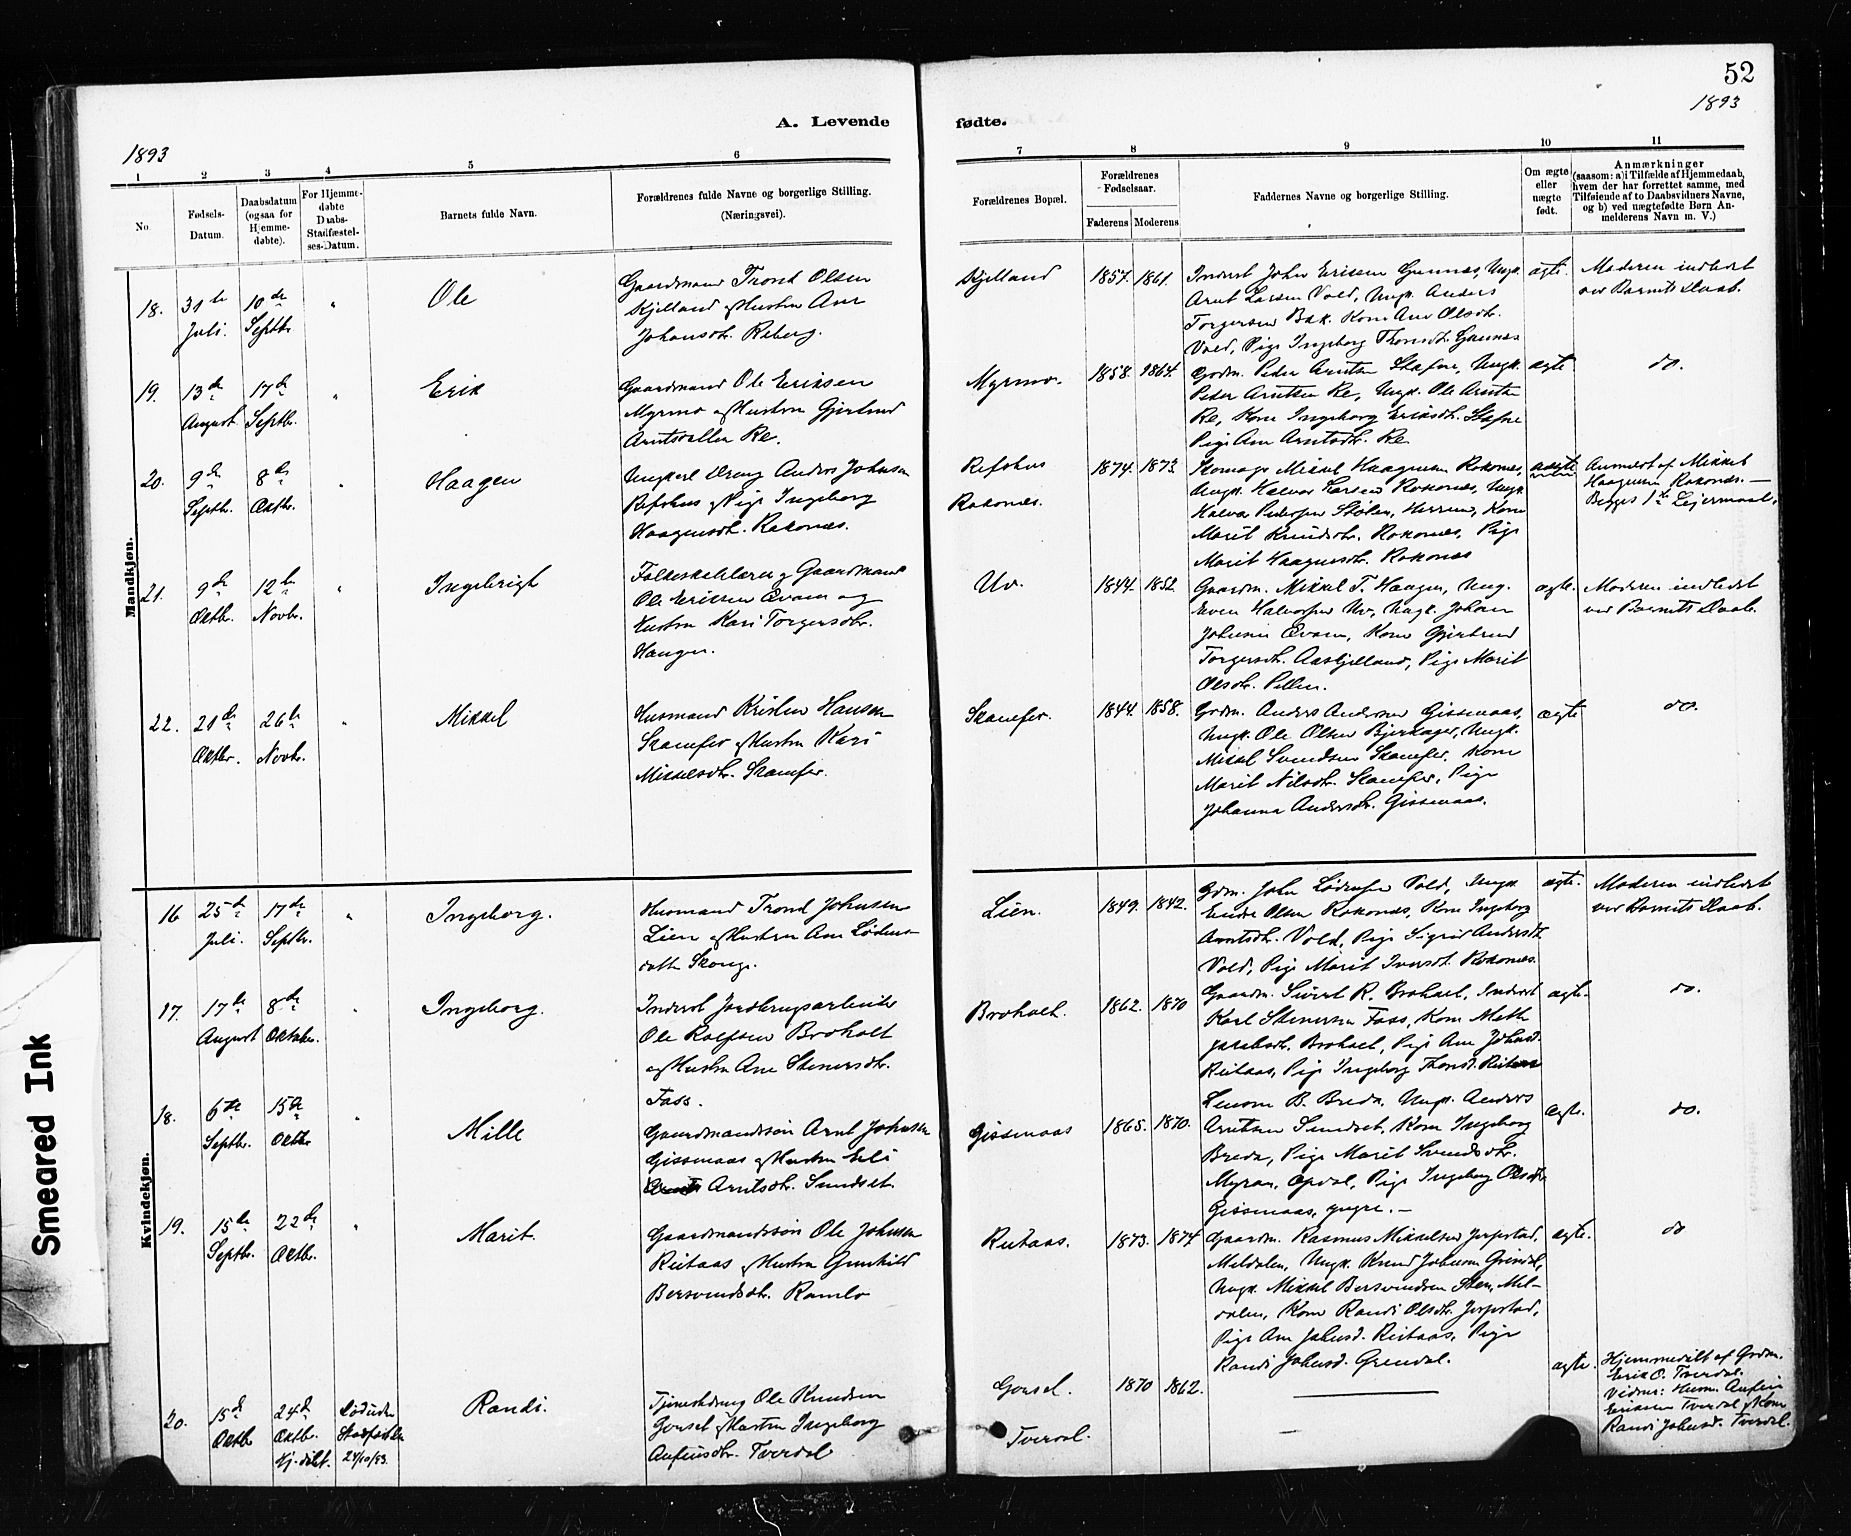 52
1893
A. Levende fødte.
1893
1 2 3 4 5 6 7 8 9 10 11
No.
Fødsels-
Datum.
Daabsdatum
(ogsaa for
Hjemme-
døbte).
For Hjemme-
døbte
Daabs-
Stadfæstel-
ses-Datum.
Barnets fulde Navn.
Forældrenes fulde Navne og borgerlige Stilling.
(Næringsvei).
Forældrenes Bopæl.
Forældrenes
Fødselsaar.
Faderens Moderens
Faddernes Navne og borgerlige Stilling.
Om ægte
eller
uægte
født.
Anmærkninger
(saasom: a) i Tilfælde af Hjemmedaab,
hvem der har forrettet samme, med
Tilføiende af to Daabsvidners Navne,
og b) ved uægtefødte Børn An-
melderens Navn m. V.)
Mandkjøn.
18.
31te
Juli.
10de
Septbr.
"
Ole
Gaardmand Trond Olsen
Kjelland og Hustru Ane
Johansdtr. Reberg.
Kjelland
1857. 1861.
Inderst John Eriksen Gunnes, Ungk.
Arnt Larsen Vold, Ungk. Anders
Torgersen Bak. Kone Ane Olsdtr.
Vold, Pige Ingeborg Thomsdtr. Gunnes
ægte.
Moderen indledet
ved Barnets Daab.
19.
13de
August
17de
Septbr.
"
Erik
Gaardmand Ole Eriksen
Myrmo og Hustru Gjertrud
Arntsdatter Re.
Myrmo.
1858. 1864.
Grdm. Peder Arntsen Stafne, Ungk.
Peder Arntsen Re, Ungk. Ole Arntsen
Re, Kone Ingeborg Eriksdtr. Stafne
Pige Ane Arntsdtr. Re
ægte
do.
20.
9de
Septbr.
8de
Oktbr.
"
Haagen
Ungkarl Dreng Anders Johnsen
Refshus og Pige Ingeborg
Haagensdtr. Rokones.
Refshus
Rokones.
1874. 1873
Skomag. Mikkel Haagensen Rokones,
Ungk. Halvor Larsen Rokones, Ungk.
Halvor Pedersen Stølen, Herrem, Kone
Marit Knudsdtr. Rokones, Pige
Marit Haagensdtr. Rokones
uægte
Anmeldt af Mikkel
Haagensen Rokones. —
Begges 1ste Leiermaal.
21.
9de
Oktbr.
12te
Novbr.
"
Ingebrigt
Folkeskolelærer og Gaardmand
Ole Eriksen Evam og
Hustru Kari Torgersdtr.
Haugen.
Uv.
1844. 1852
Gaardm. Mikkel T. Haugen, Ung.
Even Halvorsen Uv, Ungk. Johan
Johnsen Evam, Kone Gjertrud
Torgersdtr. Aaskjelland, Pige Marit
Olsdtr.
ægte.
Moderen indledet
ved Barnets Daab.
22.
21de
Oktbr.
26de
Novbr.
"
Mikkel
Husmand Kristen Hansen
Skamfer og Hustru Kari
Mikkelsdtr. Skamfer.
Skamfer.
1844. 1858.
Grdm. Anders Andersen Gissenaas,
Ungk. Ole Olsen Bjerkager, Ungk.
Mikkel Svendsen Skamfer, Kone
Marit Nilsdtr. Skamfer, Pige
Johanna Andersdtr. Gissenaas.
ægte
do.
Kvindekjøn.
16
25de
Juli.
17de
Septbr.
"
Ingeborg.
Husmand Trond Johnsen
Lien og Hustru Ane Lødens-
datter Skoug.
Lien.
1849. 1842.
Gdm. John Lødensen Vold, Ungk
Endre Olsen Rokones, Kone Ingeborg
Arntsdtr. Vold, Pige Sigrid Andersdtr.
Vold, Pige Marit Iversdt. Rokones.
ægte.
Moderen indledet
ved Barnets Daab.
17.
17de
August
8de
Oktober.
"
Ingeborg.
Inderst Jordbrugsarbeider
Ole Rolfsen Broholt
og Hustru Ane Stenersdtr.
Foss.
Broholt.
1862. 1870
Gaardm. Sivert R. Broholt, Inderst
Karl Stenersen Foss, Kone Mette
Jakobsdtr. Broholt, Pige Ane Johnsd.
Reitaas, Pige Ingeborg Thorsd. Reitaas
ægte.
do.
18.
6te
Septbr.
15de
Oktbr
"
Mille
Gaardmandssøn Arnt Johnsen
Gissenaas og Hustru Eli
Arntsdtr. Sundset.
Gissenaas
1865. 1870.
Lensm. B. Breda, Ungk. Anders
Arntsen Sundset, Kone Ingeborg
Breda, Pige Marit Svendsdtr.
Myran, Opdal, Pige Ingeborg Olsdtr.
Gissenaas, yngre. —
ægte.
do.
19.
15de
Septbr.
22de
Oktbr.
"
Marit.
Gaardmandssøn Ole Johnsen
Reitaas og Hustru Gunhild
Bersvendsdtr. Ramlo
Reitaas.
1873. 1874
Gaardm. Rasmus Mikkelsen Jerpstad,
Meldalen, Ungk. Knud Johnsen Grendal,
Ungk. Mikkel Bersvendsen Sten, Mel-
dalen, Kone Randi Olsdtr. Jerpstad,
Pige Ane Johnsd. Reitaas, Pige
Randi Johnsd. Grendal.
ægte.
do
20.
15de
Oktbr
24de
Oktbr.
Hj.-døbt.
24/10/93.
Randi.
Tjenestedreng Ole Knudsen
Gorset og Hustru Ingeborg
Anfinsdtr. Tverdal
Gorset.
Tverdal.
1870 1862.
ægte.
Hjemmedøbt af Grdm.
Erik O. Tverdal.
Vidner: Husm. Anfin
Eriksen Tverdal og Kone
Randi Johnsd. Tverdal.
Smeared Ink